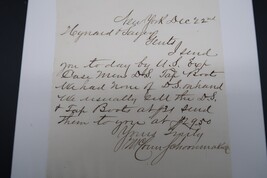 New York Dec 22d
Gents
I send
you to day by U.S. Exp
Case Mens D.S. Tap Boot
We had None of D.S. on hand
We usually sell the D.S.
& Tap Boots at $4 send
them to you at $2.50
Yours Truly